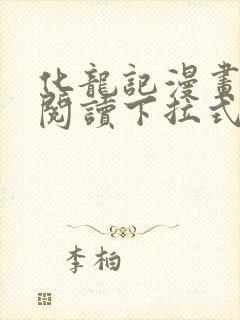 化龍記漫畫
閱讀下拉式
李柏